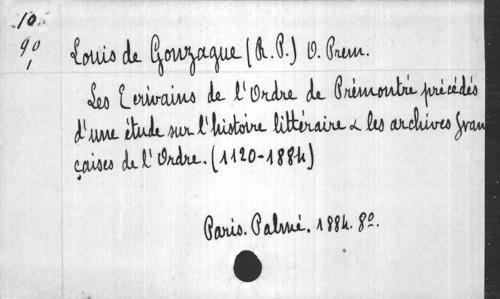 10
90
1
Louis de Gonzague (R. P.) O. Prem.
Les Ecrivains de l'Ordre de Prémontré précédés
d'une étude sur l'histoire littéraire & les archives fran
çaises de l'Ordre. (1120-1884)
Paris. Palmé. 1884. 8º.